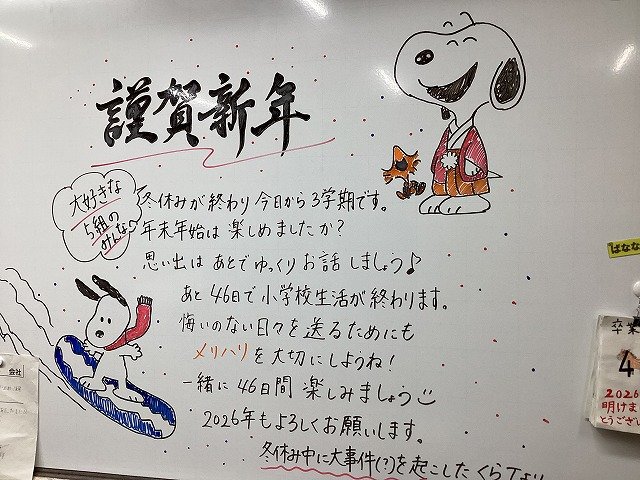 謹賀新年
大好きな
5組の
みんな♡
冬休みが終わり今日から3学期です。
年末年始は楽しめましたか?
思い出はあとでゆっくりお話しましょう♪
あと46日で小学校生活が終わります。
悔いのない日々を送るためにも
メリハリを大切にしようね!
一緒に46日間楽しみましょう
2026年もよろしくお願いします。
冬休み中に大事件(?)を起こしたくらTより
ばなな
卒業
4
2026
明けま
とうござい
会社